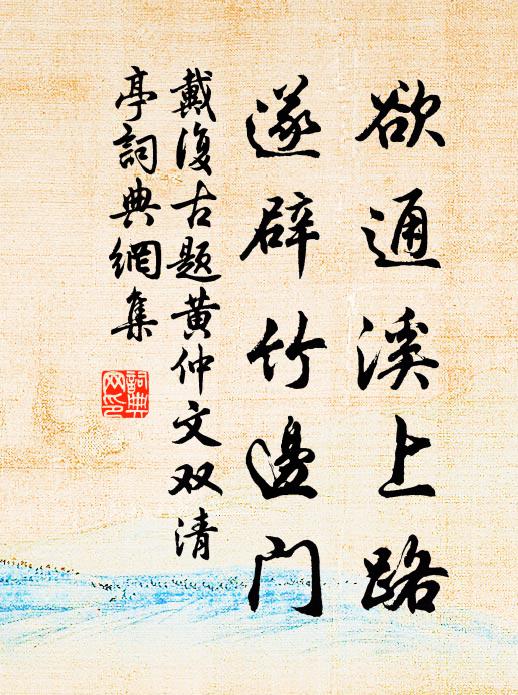 欲通溪上路
遂辟竹邊门
戴復古题黄仲文双清
亭詞典網集
詞典
网印